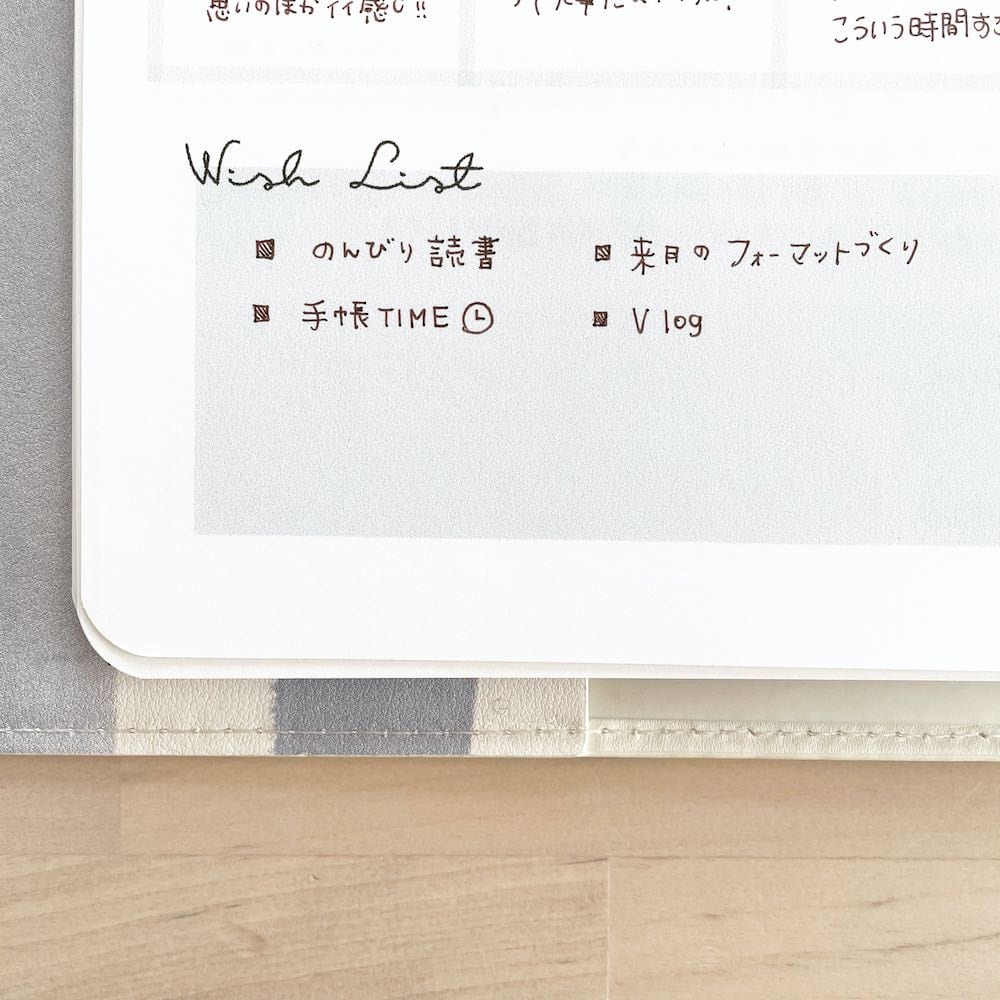 思いのほかイイ感じ!!
こういう時間する
Wish List
のんびり読書
来月のフォーマットづくり
手帳TIME
Vlog